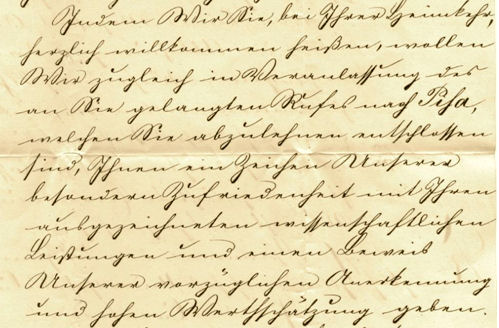 Indem Wir Sie, bei Ihrer Heimkehr,
herzlich willkommen heißen, wollen
Wir zugleich in Veranlassung des
an Sie gelangten Rufes nach Pisa,
welchen Sie abzulehnen entschlossen
sind, Ihnen ein Zeichen Unserer
besondern Zufriedenheit mit Ihren
ausgezeichneten wissenschaftlichen
Leistungen und einen Beweis
Unserer vorzüglichen Anerkennung
und hohen Werthschätzung geben.